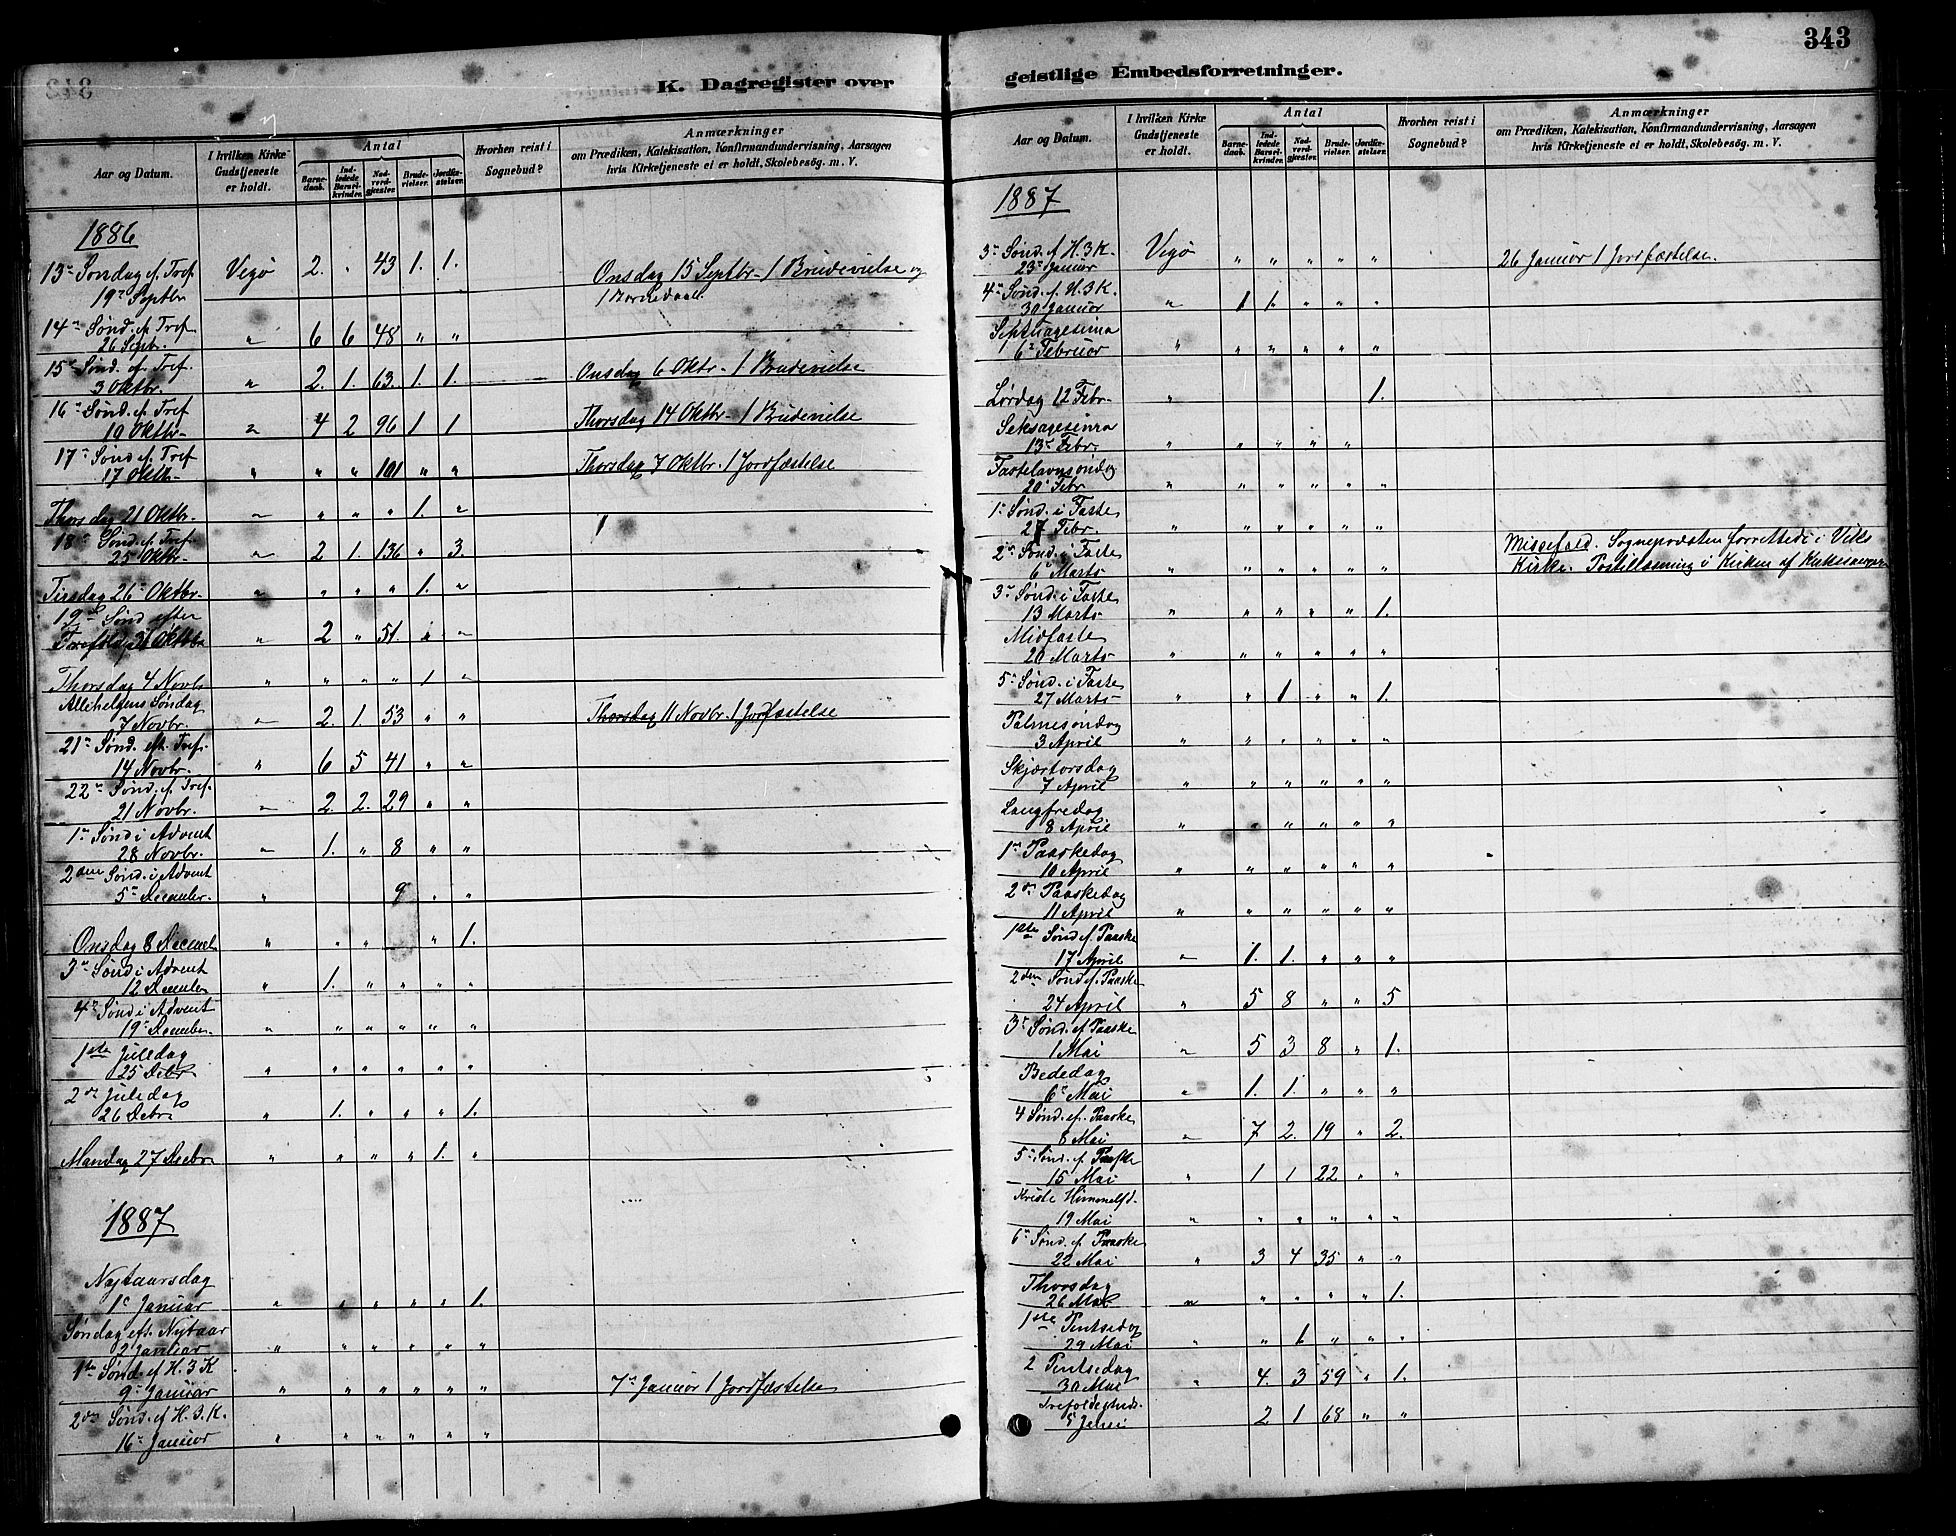 343
K. Dagregister over
Aar og Datum.
I hvilken Kirke Gudstjeneste er holdt.
Antal
Barne-daab.
Ind-ledede Barsel-kvinder.
Nad-verd-gjæster.
Brude-vielser.
Jordfæ-stelser.
Hvorhen reist i Sognebud?
Anmærkninger
om Prædiken, Katekisation, Konfirmandundervisning, Aarsagen
hvis Kirketjeneste ei er holdt, Skolebesøg. m. V.
1886
13de Søndag ef. Tref. Vegø 2. " 43 1. 1. Onsdag 15 Septbr - 1 Brudevielse og
19de Septbr 1 Barnedaab.
14de Sønd. ef. Tref.
26 Sept. " 6 6 48 " "
15de Sønd. ef. Tref.
3 Oktbr. " 2. 1. 63. 1. 1. Onsdag 6 Oktr - 1 Brudevielse
16 Sønd. ef. Tref
10 Oktbr- " 4 2 96 1. 1 Thorsdag 14 Oktbr - 1 Brudevielse
17de Sønd ef. Tref
17 Oktb- " " " 101 " " Thorsdag 7 Oktbr. 1 Jordfæstelse
Thorsdag 21 Oktbr. " " " " 1. "
18de Sønd. ef. Tref.
25 Oktbr. " 2 1. 136 " 3.
Tirsdag 26 Oktbr. " " " " 1. "
19de Sønd efter
Trefold. 31 Oktbr " 2 " 51. " "
Thorsdag 4 Novbr " " " " 1. "
Allehelgens Søndag
7 Novbr. " 2. 1. 53 " " Thorsdag 11 Novbr. 1 Jordfæstelse
21de Sønd. eft. Tref.
14 Novbr. " 6 5 41 " "
22de Sønd. ef. Tref.
21 Novbr. " 2. 2. 29 " "
1ste Sønd i Advent
28 Novbr. " 1. " 8 " "
2den Sønd. i Advent
5te December. " 9 " "
Onsdag 8 Decembr " " " " 1.
3de Sønd i Advent
12 December " 1. " " " "
4de Sønd i Advent
19de December. " " " " " "
1ste Juledag
25 Debr " " " " " "
2den Juledag
26 Debr " 1. " " " 1.
Mandag 27 Debr " " " " 1. "
1887
Nytaarsdag
1ste Januar " " " " " 1.
Søndag eft. Nytaar
2 Januar " " " " " "
1ste Sønd. ef H. 3 K
9de Januar " " " " " " 7de Januar 1 Jordfæstelse
2den Sønd. ef H. 3. K.
16de Januar " " " " " "
geistlige Embedsforretninger.
343
Aar og Datum.
I hvilken Kirke Gudstjeneste er holdt.
Antal
Barne-daab.
Ind-ledede Barsel-kvinder.
Nad-verd-gjæster.
Brude-vielser.
Jordfæ-stelser.
Hvorhen reist i Sognebud?
Anmærkninger
om Prædiken, Katekisation, Konfirmandundervisning, Aarsagen
hvis Kirketjeneste ei er holdt, Skolebesøg. m. V.
1887
3de Sønd. ef H. 3 K. Vegø " " " " " 26 Januar 1 Jordfæstelse.
23de Januar
4de Sønd. ef. H. 3 K.
30 Januar " 1 1. " " "
Septuagesima
6te Februar " " " " " "
Lørdag 12 Febr. " 1.
Seksagesima
13de Febr. " " " " "
Fastelavnsøndag
20de Febr " " " " " "
1ste Sønd. i Faste
27 Febr. " " " " " "
2den Sønd. i Faste
6te Marts " " " " " " Messefald. Sognepræsten forrettede i Viks
Kirke. Postillæsning i Kirken af Kirkesangeren
3de Sønd. i Faste
13 Marts " " " " " 1.
Midfaste
20 Marts " " " " " "
5te Sønd. i Faste
27 Marts " " 1 " " 1.
Palmesøndag
3 April " " " " " "
Skjærtorsdag
7 April " " " " " "
Langfredag
8 April " " " " " "
1ste Paaskedag
10 April " " " " " "
2den Paaskedag
11 April " " " " " "
1ste Sønd ef. Paaske
17 April " 1. 1. " " "
2den Sønd. ef. Paaske
24 April " 5 8 " " 5
3de Sønd. ef Paaske
1 Mai " 5 3 8 " 1.
Bededag
6te Mai " 1. 1. " " "
4 Sønd. ef. Paaske
8 Mai " 7 2. 19 " 2.
5te Sønd. ef Paaske
15 Mai " 1 1 22 " "
Kristi Himmelfd.
19 Mai " " " " " "
6te Sønd. ef. Paaske
22 Mai " 3 4 35 " "
Thorsdag
26 Mai " " " " " 1.
1ste Pintsedag
29 Mai " " 6 " " "
2 Pintsedag
30 Mai " 4. 3 59 " 1.
Trefoldigheds.
5 Juni 2 1 68 " "